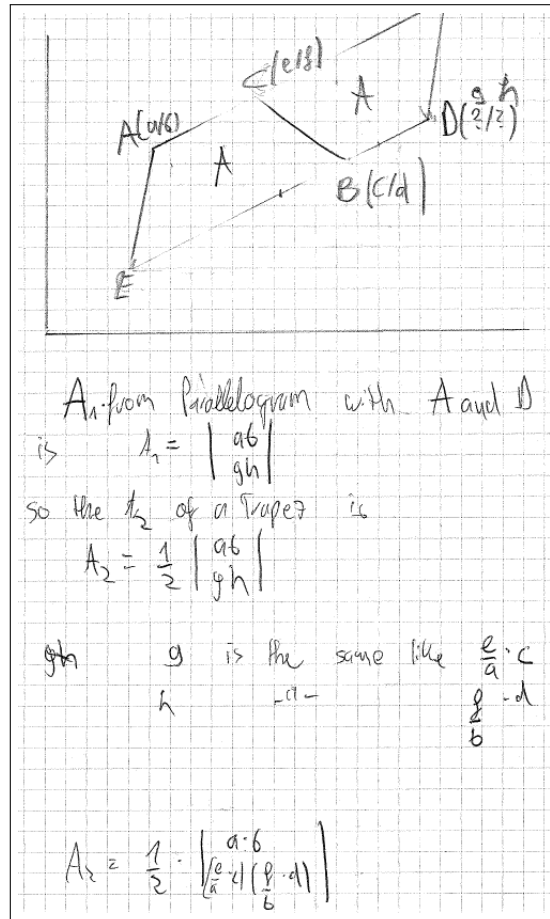 C(e/f)
A(a/b)
A
A
g h
D(?/?)
B(c/d)
E
A₁ from Parallelogram with A and D
is A₁ = | ab |
| gh |
so the A₂ of a Trapez is
A₂ = 1/2 | ab |
| gh |
g is the same like e/a · c
h -"- f/b · d
A₂ = 1/2 · | a·b |
| (e/a · c) (f/b · d) |